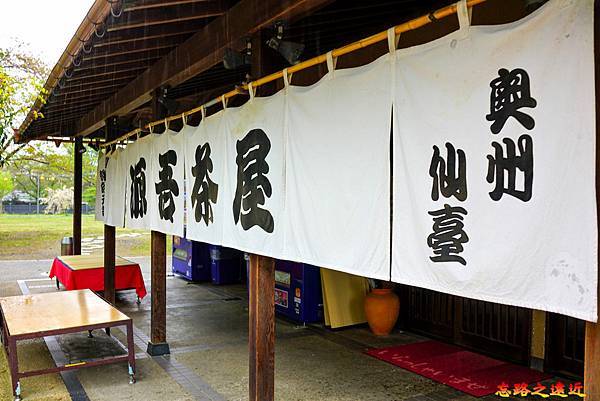 源吾茶屋
奥州
仙臺
忘路之遠近